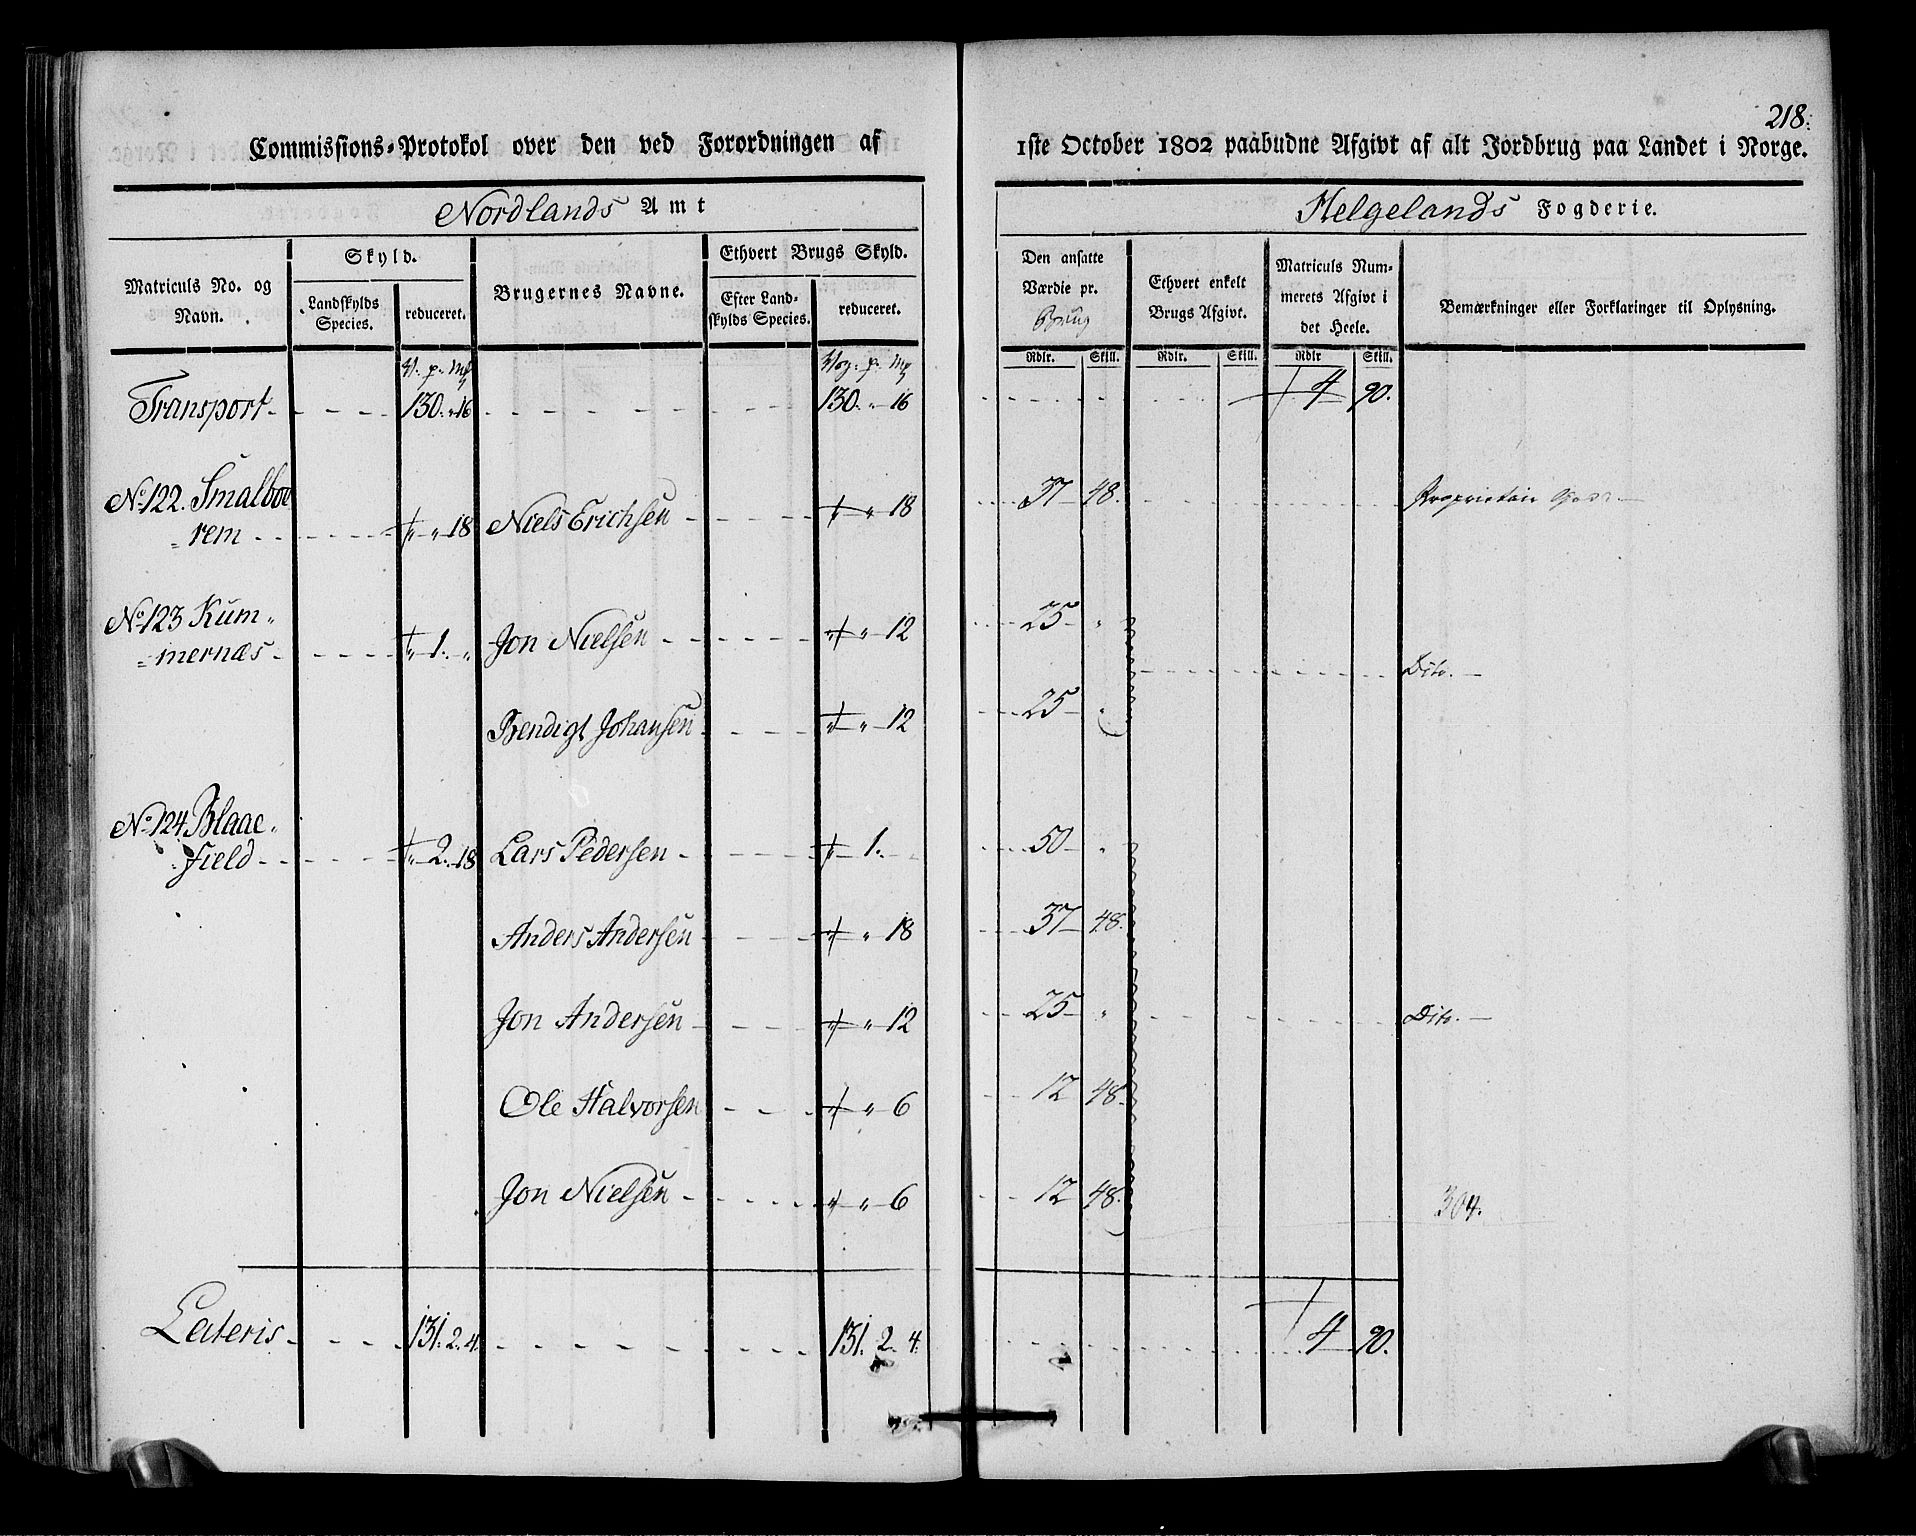 218.
Commissions-Protokol over den ved Forordningen af 1ste October 1802 paabudne Afgivt af alt Jordbrug paa Landet i Norge.
Nordlands Amt
Helgelands Fogderie.
Matriculs No. og Navn.
Skyld.
Landskylds Species.
reduceret.
Brugernes Navne.
Ethvert Brugs Skyld.
Efter Landskylds Species.
reduceret.
Den ansatte Værdie pr. Brug
Ethvert enkelt Brugs Afgivt.
Matriculs Nummerets Afgivt i det Heele.
Bemærkninger eller Forklaringer til Oplysning.
Rdlr. Skill. Rdlr. Skill. Rdlr Skill.
Transport 130. " 16 130. " 16 4 90.
No 122. Smalboe
=rem " " 18 Niels Erichsen " " 18 37 48. Proprietair Gods
No 123 Kum=
=mernæs " 1. " Jon Nielsen " " 12 25 " Dito.
Bendigt Johansen " " 12 25 "
No 124 Blaae=
field " 2. 18 Lars Pedersen 1. 50 "
Anders Andersen " 18 37 48.
Jon Andersen " " 12 25 " Dito.
Ole Halvorsen " " 6 12 48.
Jon Nielsen " " 6 12 48. 304.
Lateris 131. 2. 4. 131. 2. 4. 4 90.